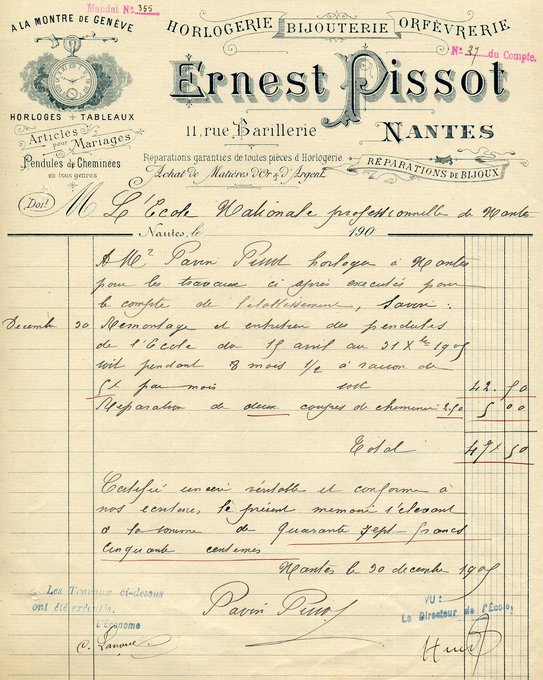 Mandat N° 355
A LA MONTRE DE GENÈVE
HORLOGERIE BIJOUTERIE ORFÈVRERIE
N° 37 du Compte.
Ernest Pissot
HORLOGES + TABLEAUX
11, rue Barillerie
NANTES
Articles pour Mariages
Pendules de Cheminées
en tous genres
Réparations garanties de toutes pièces d'Horlogerie
Achat de Matières d'Or & d'Argent
RÉPARATIONS DE BIJOUX
Doit M L'École Nationale professionnelle de Nantes
Nantes, le 190
A Mr Pavin horloger à Nantes
pour les travaux ci après executés pour
le compte de l'etablissement, Savoir :
Decembre 30 Remontage et entretien des pendules
de l'Ecole du 15 avril au 31 Xbre 1905
soit pendant 8 mois 1/2 à raison de
5f par mois soit 42.50
Réparation de deux coupes de cheminée 2.50 5 00
Total 47f 50
Certifié sincère véritable et conforme à
nos ecritures, le présent memoire s'élevant
à la somme de quarante sept francs
cinquante centimes
Nantes le 30 decembre 1905
Les Travaux ci-dessus
ont été exécutés.
L'Économe
Pavin
VU :
Le Directeur de l'École,